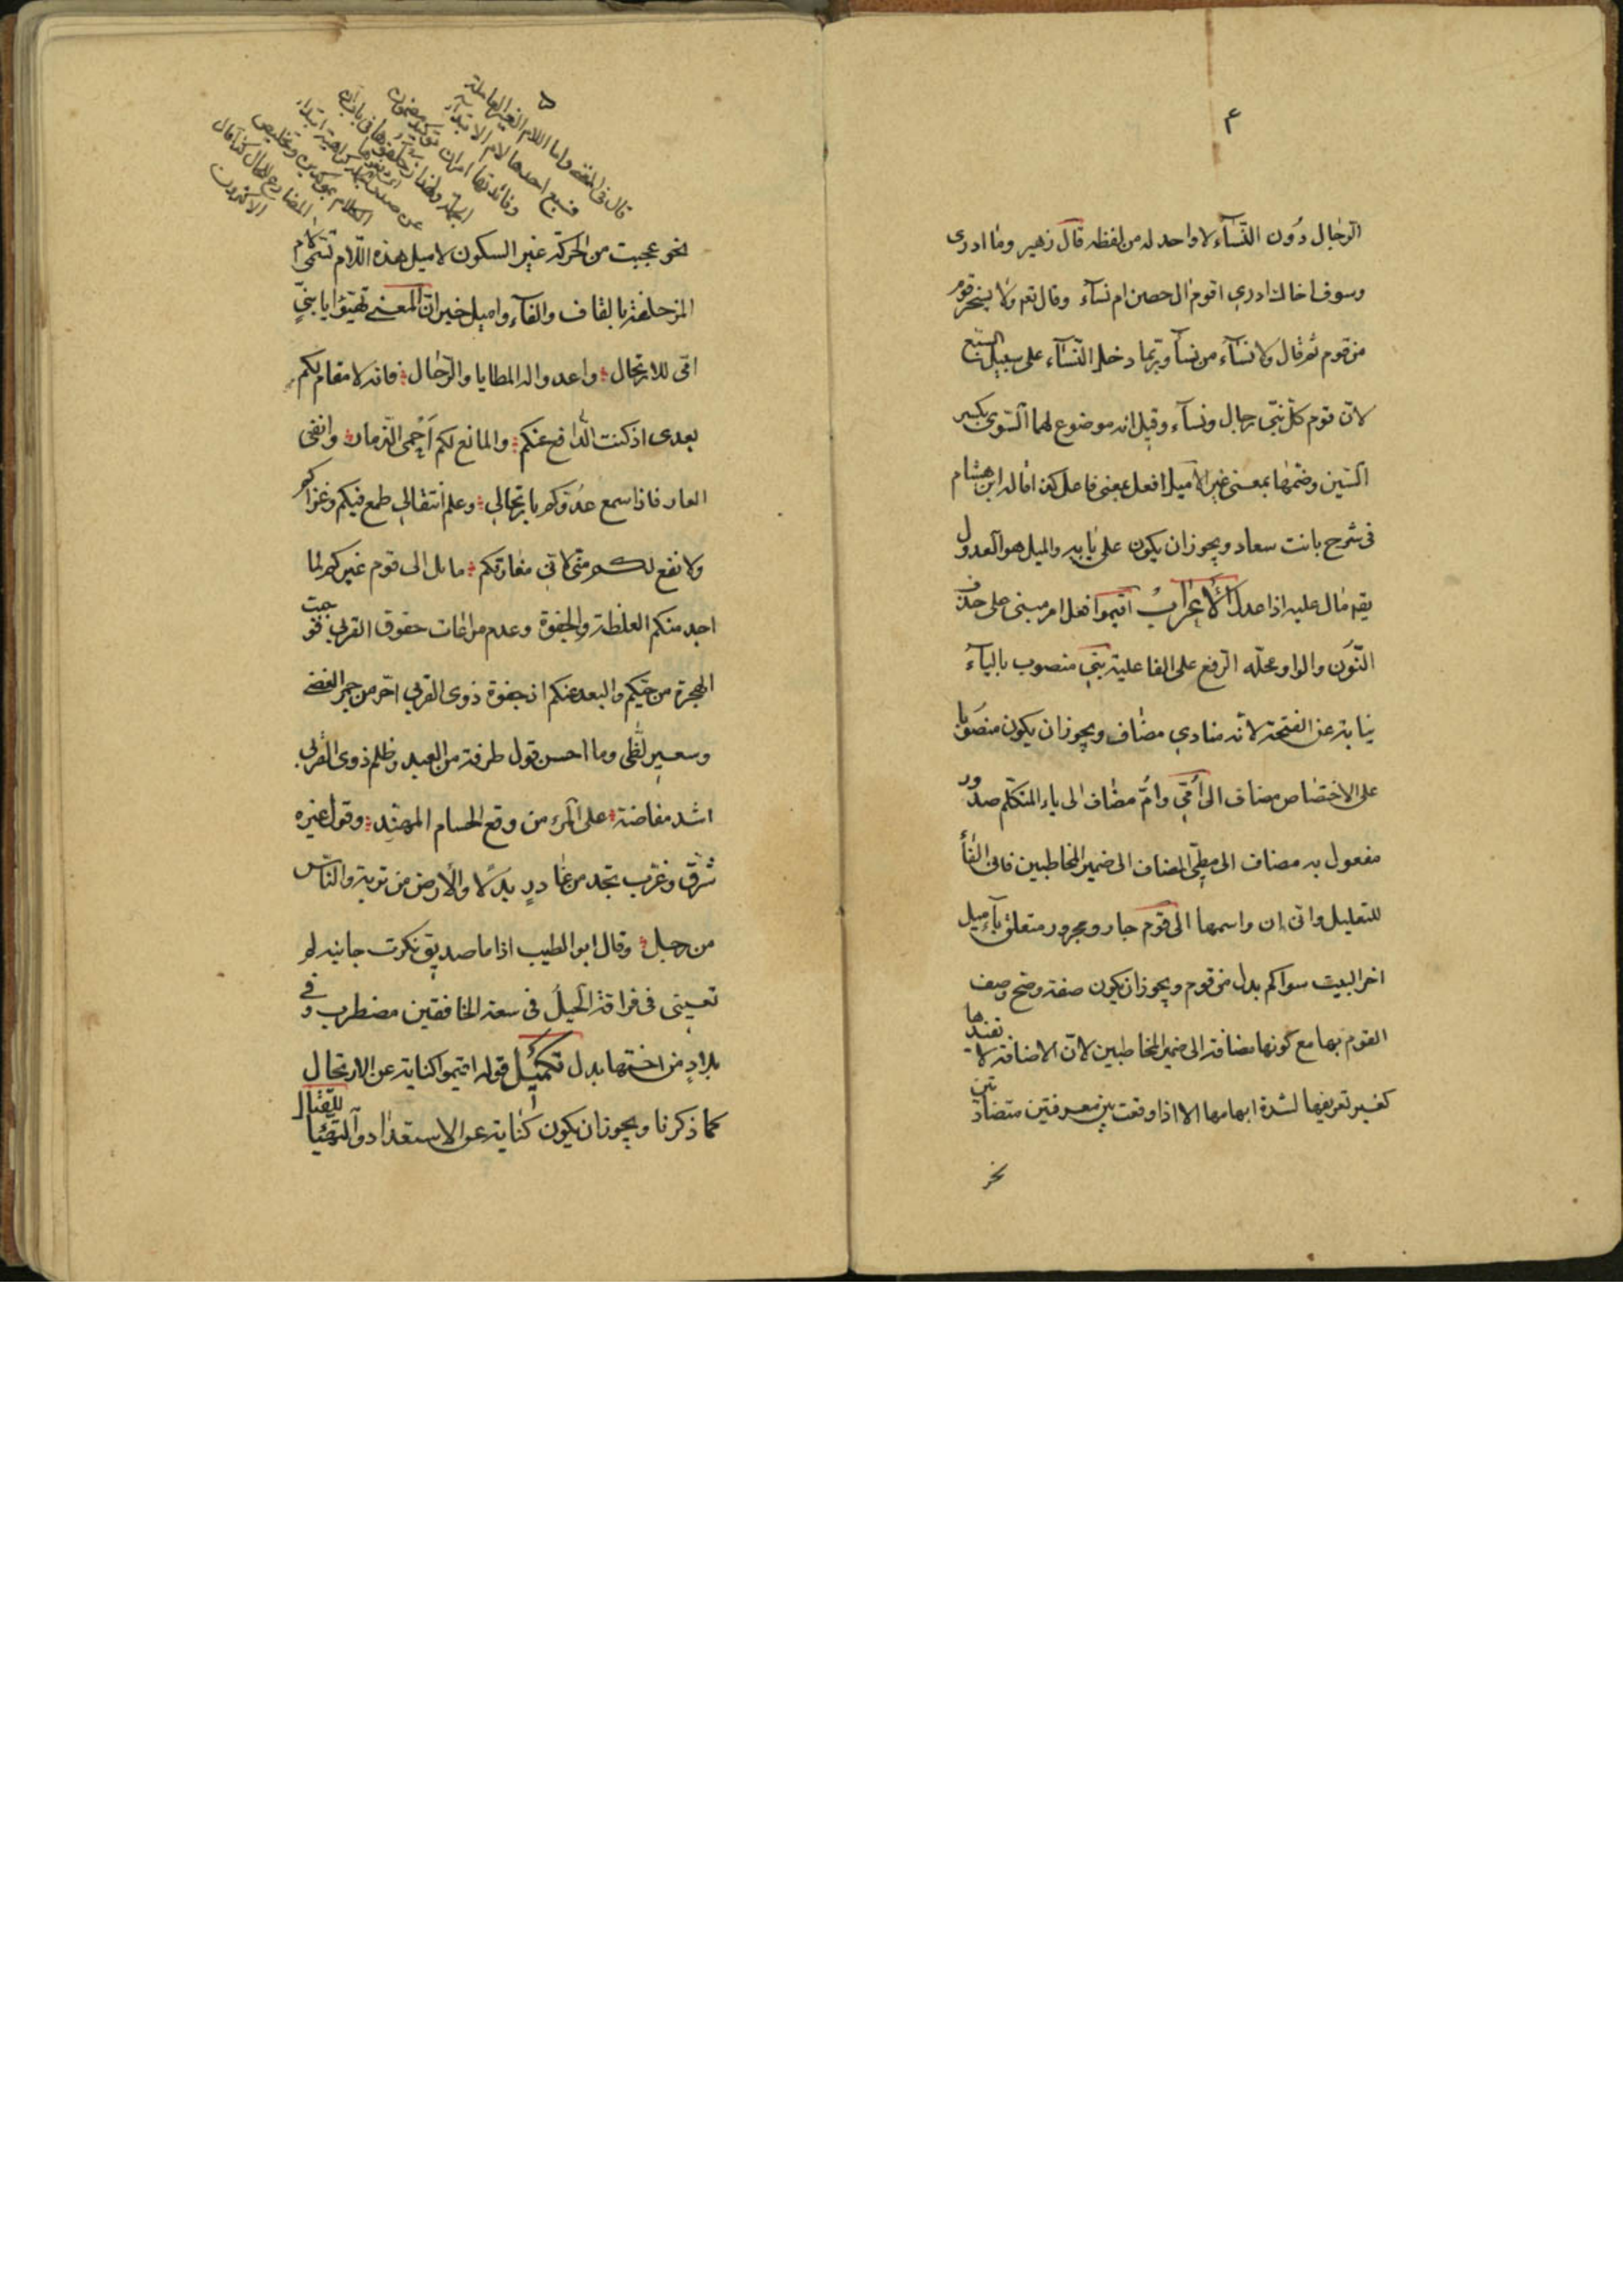 ٤
الرجال دون النسآء لا واحد له من لفظه قال زهير وما ادرى
وسوف اخال ادري اقوم ال حصن ام نسآء وقال تعم ولا يسخر قوم
من قوم ثم قال ولا نسآء من نسآ وربّما دخل النّسآء على سبيل التبع
لانّ قوم كلّ نبيّ رجال ونسآء وقيل انه موضوع لهما السّوى بكسر
السّين وضمّها بمعنى غير الاميل افعل بمعنى فاعل كذا قاله ابن هشام
فى شرح بانت سعاد ويجوز ان يكون على بابه والميل هو العدول
يقم مال عليه اذا عدل الأعراب اقيموا فعل امر مبنى على حذف
النّون والواو محلّه الرّفع على الفاعلية بني منصوب باليآء
نيابة عن الفتحة لانّه منادي مضاف ويجوز ان يكون منصوبا
على الاختصاص مضاف الى أُمّي وامّ مضاف الى ياء المتكلّم صدور
مفعول به مضاف الى مطيّ المضاف الى ضمير المخاطبين فانى الفأ
للتعليل وانّ إن واسمها الى قوم جار ومجرور متعلق باميل
اخر البيت سواكم بدل من قوم ويجوز ان يكون صفة وصح وصف
القوم بها مع كونها مضافة الى ضمير المخاطبين لانّ الاضافة لا تفيدها
كغير تعريفها لشدة ابهامها الا اذا وقعت بين معرفتين متضادتين
نحو
٥
قال فى المغنى واما اللام الغير العاملة
فسبع احدها لام الابتداء
وفائدتها امران توكيد مضمون
الجملة ولهذا زحلقوها فى باب انّ
عن صدر الجملة كراهية ابتداء
الكلام بمؤكدين وتخليص
المضارع للحال كذا قال
الاكثرون
نحو عجبت من الحركة غير السكون لاميل هذه اللام تسمّى لام
المزحلقة بالقاف والفآء واميل خبر انّ المعنى تهيّؤا يا بني
امّى للارتحال واعدوا له المطايا والرّحال فانه لا مقام لكم
بعدى اذ كنت الدافع عنكم والمانع لكم أحمى الذمار وانفى
العار فاذا سمع عدوّكم بارتحالي وعلم انتقالي طمع فيكم وغزاكم
ولا نفع لكم منّى لانّى مفارقكم مائل الى قوم غيركم لما
اجد منكم الغلظة والجفوة وعدم مراعات حقوق القربي فوجبت
الهجرة من حيّكم والبعد عنكم اذ جفوة ذوى القربي احّر من جمر الغضى
وسعير لظى وما احسن قول طرفة من العبد وظلم ذوى القربى
اشد مضاضة على المرء من وقع الحسام المهنّد وقول غيره
شرّق وغرّب تجد من غادر بدلًا والأرض من تربة والنّاس
من رجل وقال ابو الطيب اذا ما صديق نكرت جانبه لم
تعيينى فى فراقه الحيل فى سعة الخافقين مضطرب وفى
بلادٍ من اختها بدل تكميل قوله اقيموا كناية عن الارتحال
كما ذكرنا ويجوز ان يكون كناية عن الاستعداد والتهيّأ للقتال